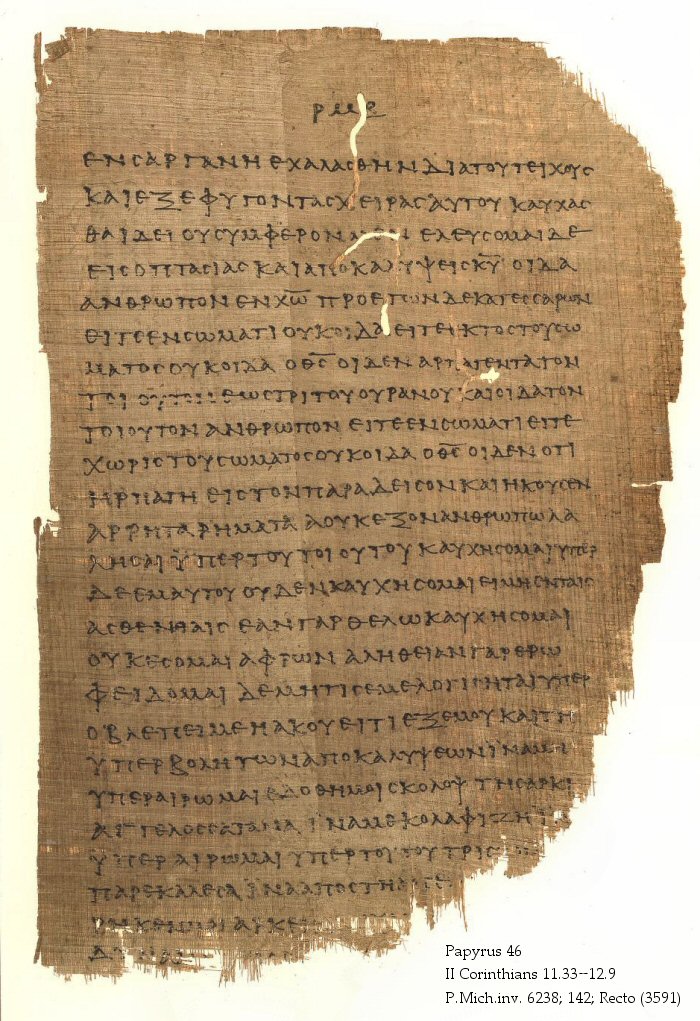 ρμε
ΕΝ ΣΑΡΓΑΝΗ ΕΧΑΛΑΣΘΗΝ ΔΙΑ ΤΟΥ ΤΕΙΧΟΥΣ
ΚΑΙ ΕΞΕΦΥΓΟΝ ΤΑΣ ΧΕΙΡΑΣ ΑΥΤΟΥ ΚΑΥΧΑΣ
ΘΑΙ ΔΕΙ ΟΥ ΣΥΜΦΕΡΟΝ ΕΛΕΥΣΟΜΑΙ ΔΕ
ΕΙΣ ΟΠΤΑΣΙΑΣ ΚΑΙ ΑΠΟΚΑΛΥΨΕΙΣ Κ̅Υ̅ ΟΙΔΑ
ΑΝΘΡΩΠΟΝ ΕΝ Χ̅Ω̅ ΠΡΟ ΕΤΩΝ ΔΕΚΑΤΕΣΣΑΡΩΝ
ΕΙΤΕ ΕΝ ΣΩΜΑΤΙ ΟΥΚ ΟΙΔΑ ΕΙΤΕ ΕΚΤΟΣ ΤΟΥ ΣΩ
ΜΑΤΟΣ ΟΥΚ ΟΙΔΑ Ο Θ̅Σ̅ ΟΙΔΕΝ ΑΡΠΑΓΕΝΤΑ ΤΟΝ
ΕΩΣ ΤΡΙΤΟΥ ΟΥΡΑΝΟΥ ΚΑΙ ΟΙΔΑ ΤΟΝ
ΤΟΙΟΥΤΟΝ ΑΝΘΡΩΠΟΝ ΕΙΤΕ ΕΝ ΣΩΜΑΤΙ ΕΙΤΕ
ΧΩΡΙΣ ΤΟΥ ΣΩΜΑΤΟΣ ΟΥΚ ΟΙΔΑ Ο Θ̅Σ̅ ΟΙΔΕΝ ΟΤΙ
ΗΡΠΑΓΗ ΕΙΣ ΤΟΝ ΠΑΡΑΔΕΙΣΟΝ ΚΑΙ ΗΚΟΥΣΕΝ
ΑΡΡΗΤΑ ΡΗΜΑΤΑ Α ΟΥΚ ΕΞΟΝ ΑΝΘΡΩΠΩ ΛΑ
ΛΗΣΑΙ ΫΠΕΡ ΤΟΥ ΤΟΙΟΥΤΟΥ ΚΑΥΧΗΣΟΜΑΙ ΥΠΕΡ
ΔΕ ΕΜΑΥΤΟΥ ΟΥΔΕΝ ΚΑΥΧΗΣΟΜΑΙ ΕΙ ΜΗ ΕΝ ΤΑΙΣ
ΑΣΘΕΝΗΑΙΣ ΕΑΝ ΓΑΡ ΘΕΛΩ ΚΑΥΧΗΣΟΜΑΙ
ΟΥΚ ΕΣΟΜΑΙ ΑΦΡΩΝ ΑΛΗΘΕΙΑΝ ΓΑΡ ΕΡΩ
ΦΕΙΔΟΜΑΙ ΔΕ ΜΗ ΤΙΣ ΕΜΕ ΛΟΓΙΣΗΤΑΙ ΥΠΕΡ
Ο ΒΛΕΠΕΙ ΜΕ Η ΑΚΟΥΕΙ ΤΙ ΕΞ ΕΜΟΥ ΚΑΙ ΤΗ
ΥΠΕΡΒΟΛΗ ΤΩΝ ΑΠΟΚΑΛΥΨΕΩΝ ΪΝΑ ΜΗ
ΥΠΕΡΑΙΡΩΜΑΙ ΕΔΟΘΗ ΜΟΙ ΣΚΟΛΟΨ ΤΗ ΣΑΡΚΙ
ΑΓΓΕΛΟΣ ΣΑΤΑΝΑ ΪΝΑ ΜΕ ΚΟΛΑΦΙΖΗ
ΥΠΕΡΑΙΡΩΜΑΙ ΥΠΕΡ ΤΟΥΤΟΥ ΤΡΙΣ
ΠΑΡΕΚΑΛΕΣΑ ΪΝΑ ΑΠΟΣΤΗ
ΑΡΚΕΙ
Papyrus 46
II Corinthians 11.33--12.9
P.Mich.inv. 6238; 142; Recto (3591)